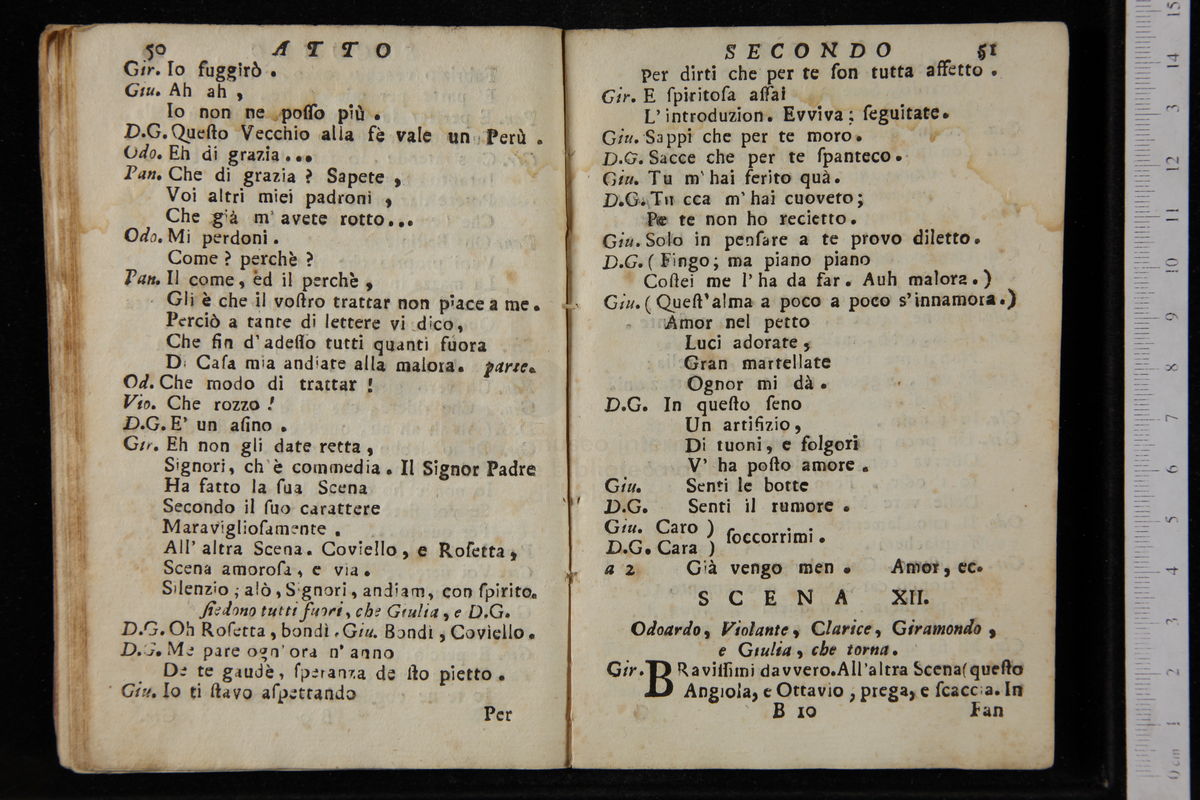 50 ATTO
Gir. Io fuggirò .
Giu. Ah ah ,
Io non ne poſſo più .
D.G. Queſto Vecchio alla fè vale un Perù .
Odo. Eh di grazia...
Pan. Che di grazia ? Sapete ,
Voi altri miei padroni ,
Che già m' avete rotto...
Odo. Mi perdoni .
Come ? perchè ?
Pan. Il come , ed il perchè ,
Gli è che il voſtro trattar non piace a me .
Perciò a tante di lettere vi dico,
Che fin d' adeſſo tutti quanti fuora
Di Caſa mia andiate alla malora. parte.
Od. Che modo di trattar !
Vio. Che rozzo !
D.G. E' un aſino .
Gir. Eh non gli date retta ,
Signori, ch'è commedia . Il Signor Padre
Ha fatto la ſua Scena
Secondo il ſuo carattere
Maraviglioſamente .
All' altra Scena. Coviello , e Roſetta ,
Scena amoroſa , e via .
Silenzio ; alò , Signori , andiam, con ſpirito.
ſiedono tutti fuori, che Giulia , e D.G.
D.G. Oh Roſetta , bondì . Giu. Bondì , Coviello .
D.G. Me pare ogn' ora n' anno
De te gaudè , ſperanza de ſto pietto .
Giu. Io ti ſtavo aſpettando
Per
SECONDO 51
Per dirti che per te ſon tutta affetto .
Gir. E ſpiritoſa aſſai
L' introduzion. Evviva ; ſeguitate.
Giu. Sappi che per te moro .
D.G. Sacce che per te ſpanteco .
Giu. Tu m' hai ferito quà.
D.G. Tu cca m' hai cuoveto ;
Pe te non ho recietto.
Giu. Solo in penſare a te provo diletto.
D.G. ( Fingo ; ma piano piano
Coſtei me l' ha da far. Auh malora . )
Giu. ( Queſt' alma a poco a poco s' innamora . )
Amor nel petto
Luci adorate ,
Gran martellate
Ognor mi dà .
D.G. In queſto ſeno
Un artifizio ,
Di tuoni , e folgori
V' ha poſto amore .
Giu. Senti le botte
D.G. Senti il rumore .
Giu. Caro )
D.G. Cara ) ſoccorrimi .
a 2 Già vengo men . Amor , ec.
SCENA XII.
Odoardo, Violante, Clarice, Giramondo ,
e Giulia , che torna .
Gir. BRaviſſimi davvero. All'altra Scena ( queſto
Angiola, e Ottavio , prega, e ſcaccia. In
B 10 Fan
0 cm 1 2 3 4 5 6 7 8 9 10 11 12 13 14 15